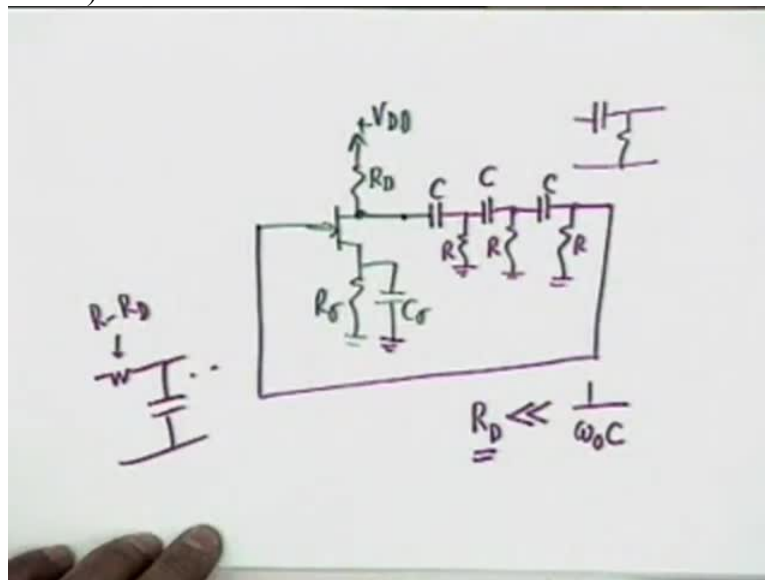 +VDD
RD
C C C
R R R
Rσ Cσ
R-RD
RD << 1/ω₀C